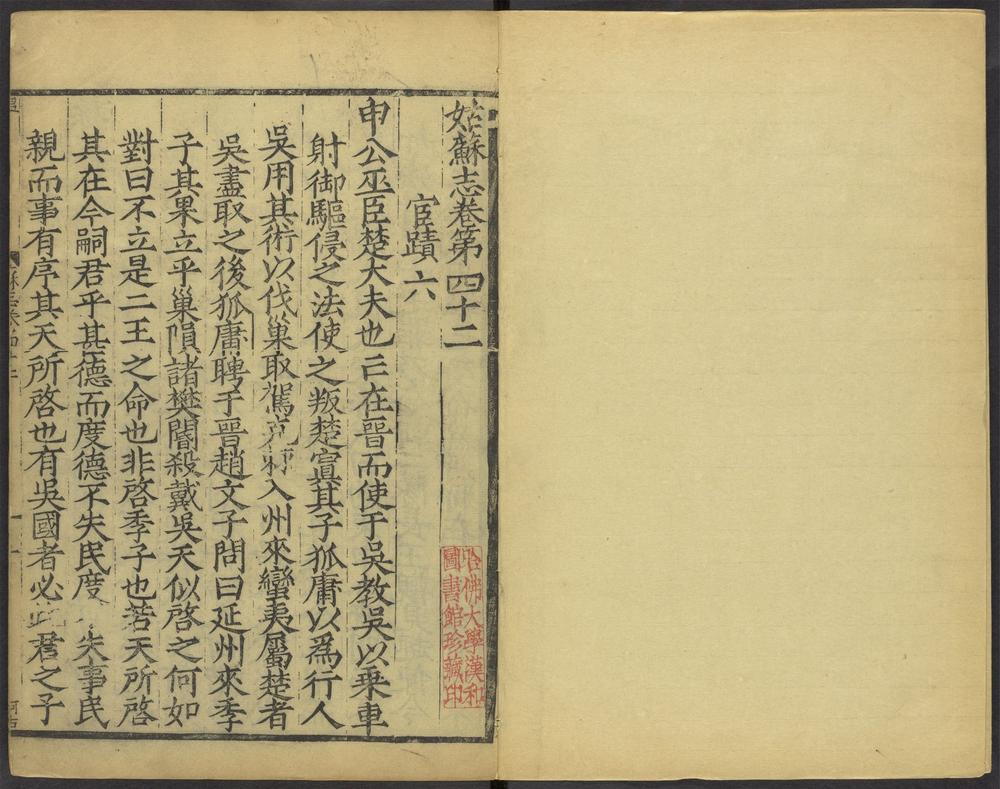 姑蘇志卷第四十二
宦蹟六
申公巫臣楚大夫也亡在晉而使于吳教吳以乗車
射御驅侵之法使之叛楚寘其子狐庸以爲行人
吳用其術以伐巢取駕克棘入州來蠻夷屬楚者
吳盡取之後狐庸聘于晉趙文子問曰延州來季
子其果立乎巢隕諸樊閽殺戴吳天似啓之何如
對曰不立是二王之命也非啓季子也若天所啓
其在今嗣君乎甚德而度德不失民度不失事民
親而事有序其天所啓也有吳國者必此君之子
哈佛大學漢和
圖書館珍藏印